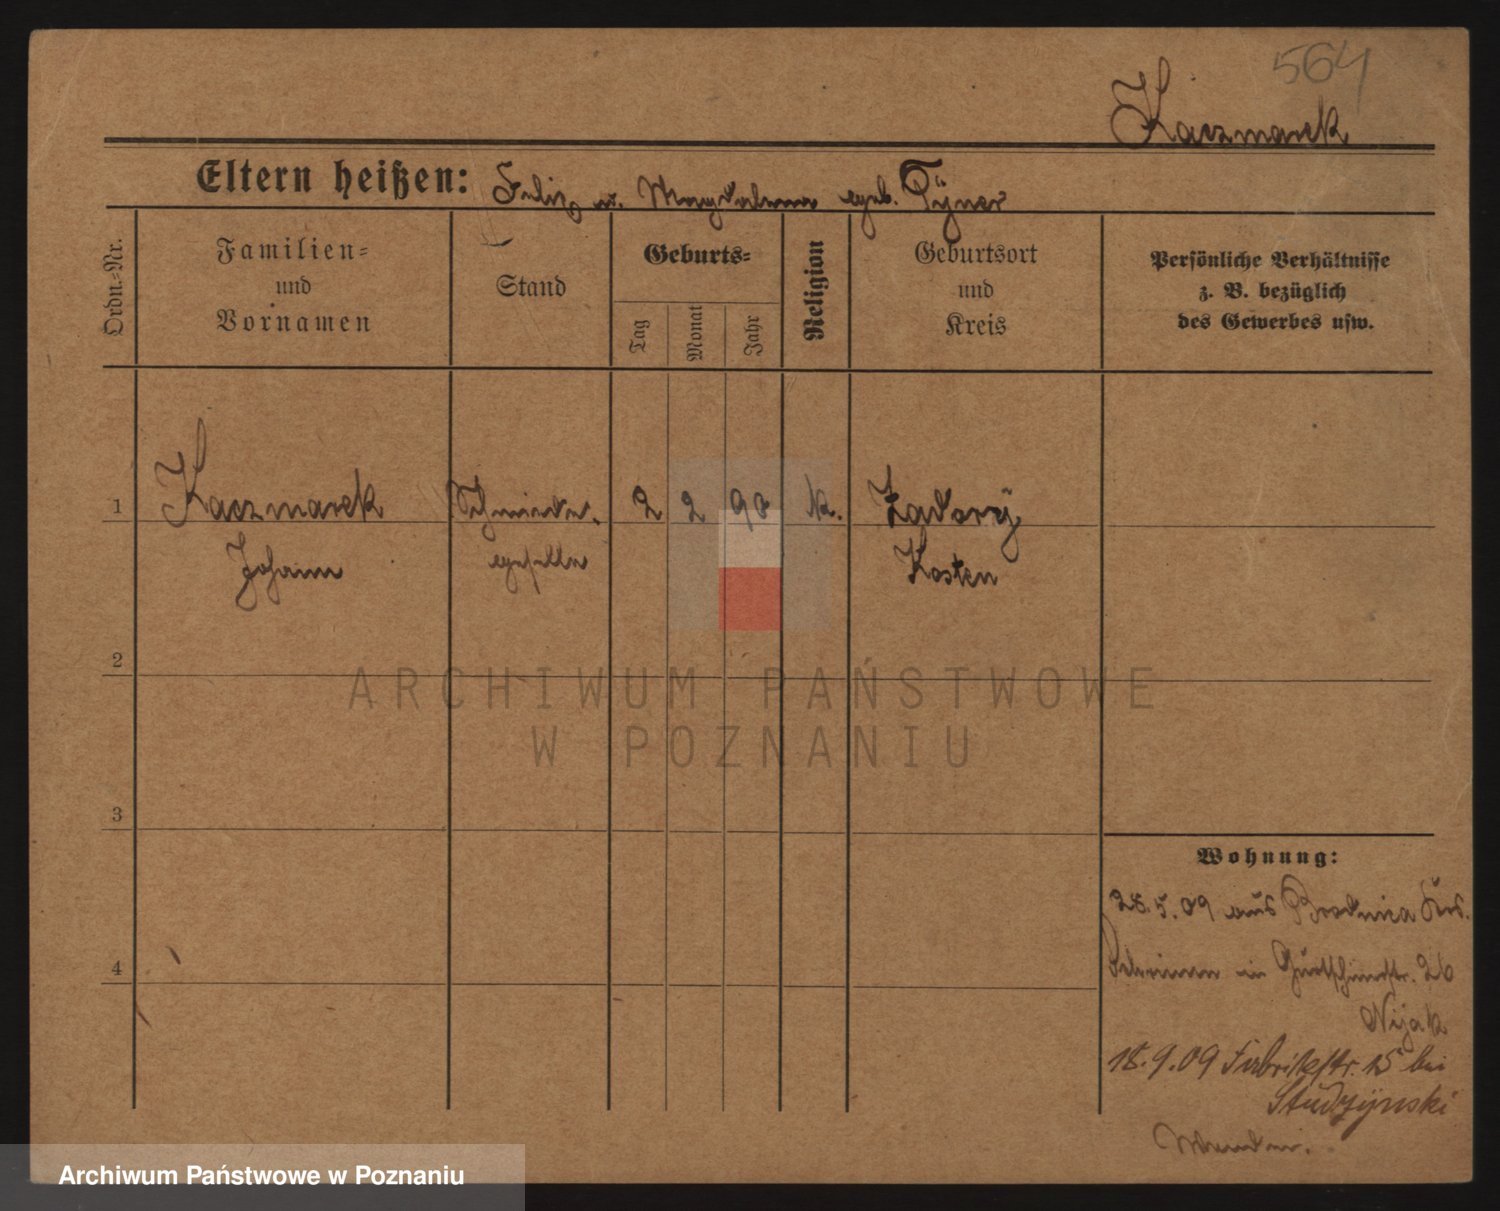 564
Kaczmarek
Eltern heißen: Felix u. Magdalena geb. Tÿner
Ordn.-Nr.
Familien-
und
Vornamen
Stand
Geburts-
Tag
Monat
Jahr
Religion
Geburtsort
und
Kreis
Persönliche Verhältnisse
z. B. bezüglich
des Gewerbes usw.
1 Kaczmarek Schmiede- 2 2 90 k. Zadorÿ
Johann geselle Kosten
2
ARCHIWUM PAŃSTWOWE
W POZNANIU
3
Wohnung:
28.5.09 aus Brodnica Krs.
4
in Gurtschinerstr. 26
Nijak
18.9.09 Fabrikstr. 15 bei
Studzÿnski
Archiwum Państwowe w Poznaniu